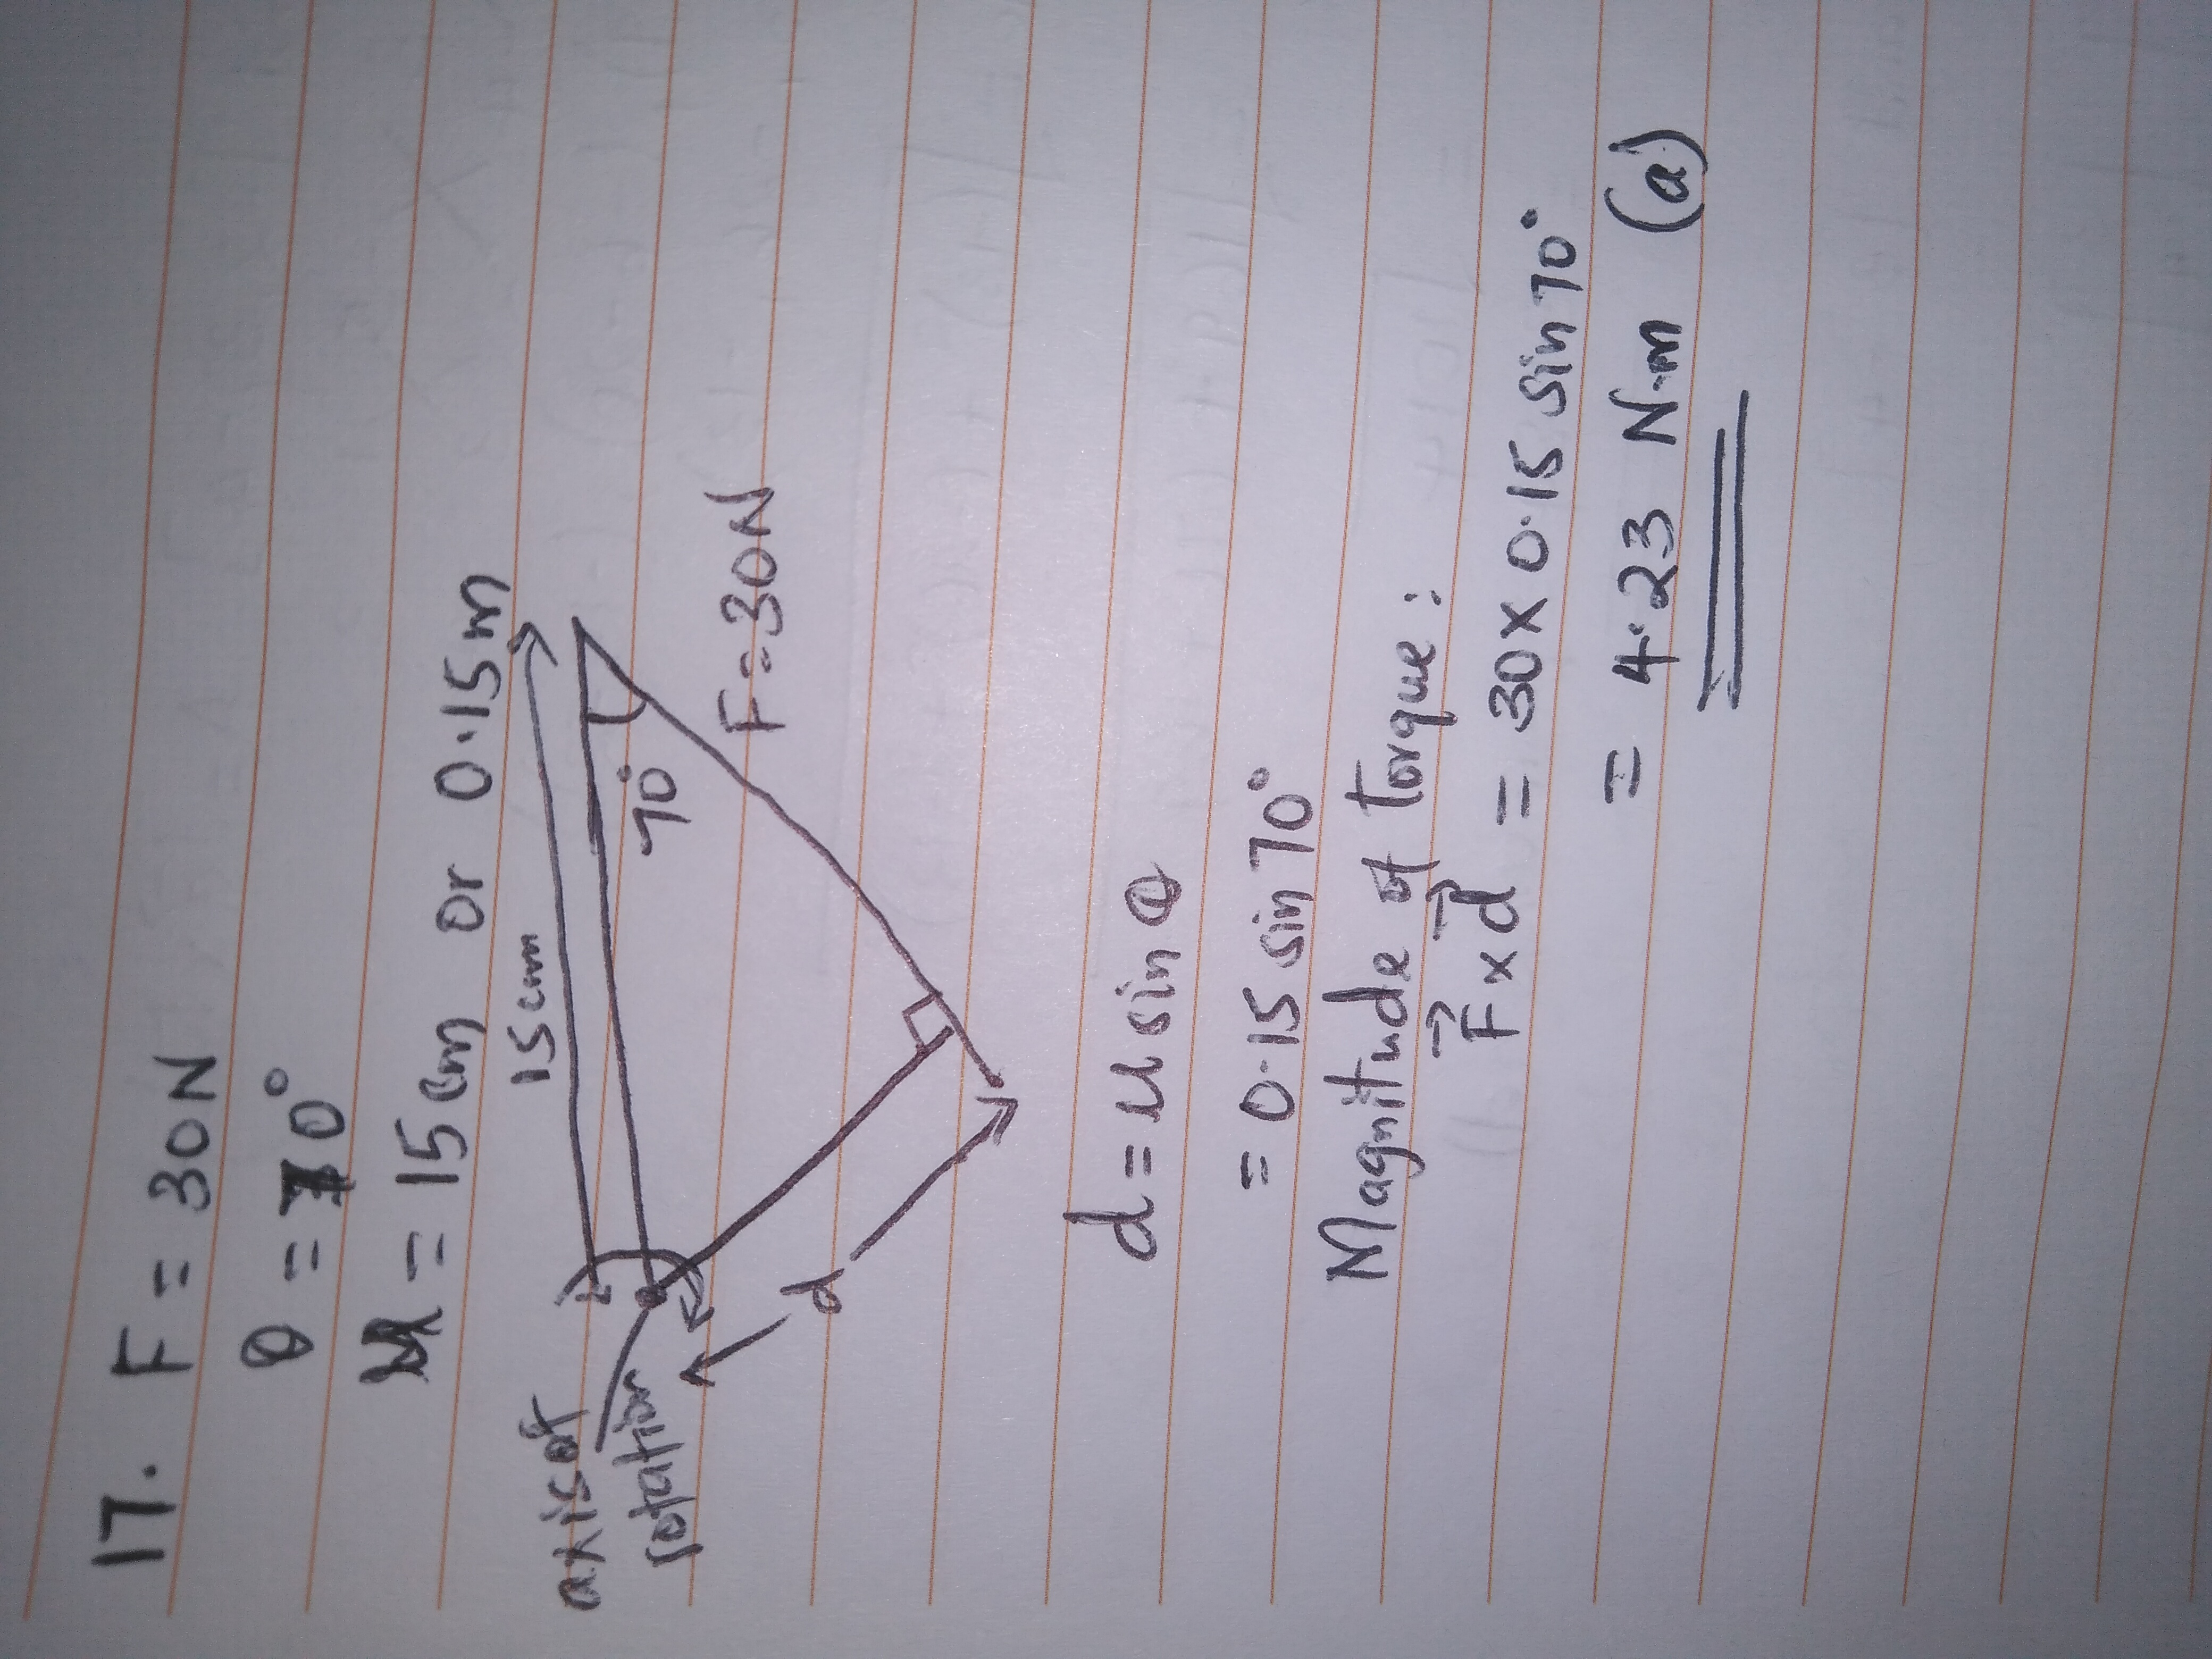 17. F = 30N
θ = 70°
r = 15cm or 0.15m
15cm
axis of
rotation
70°
F = 30N
d
d = r sin θ
= 0.15 sin 70°
Magnitude of torque:
F⃗ × d⃗ = 30 × 0.15 sin 70°
= 4.23 N·m (a)